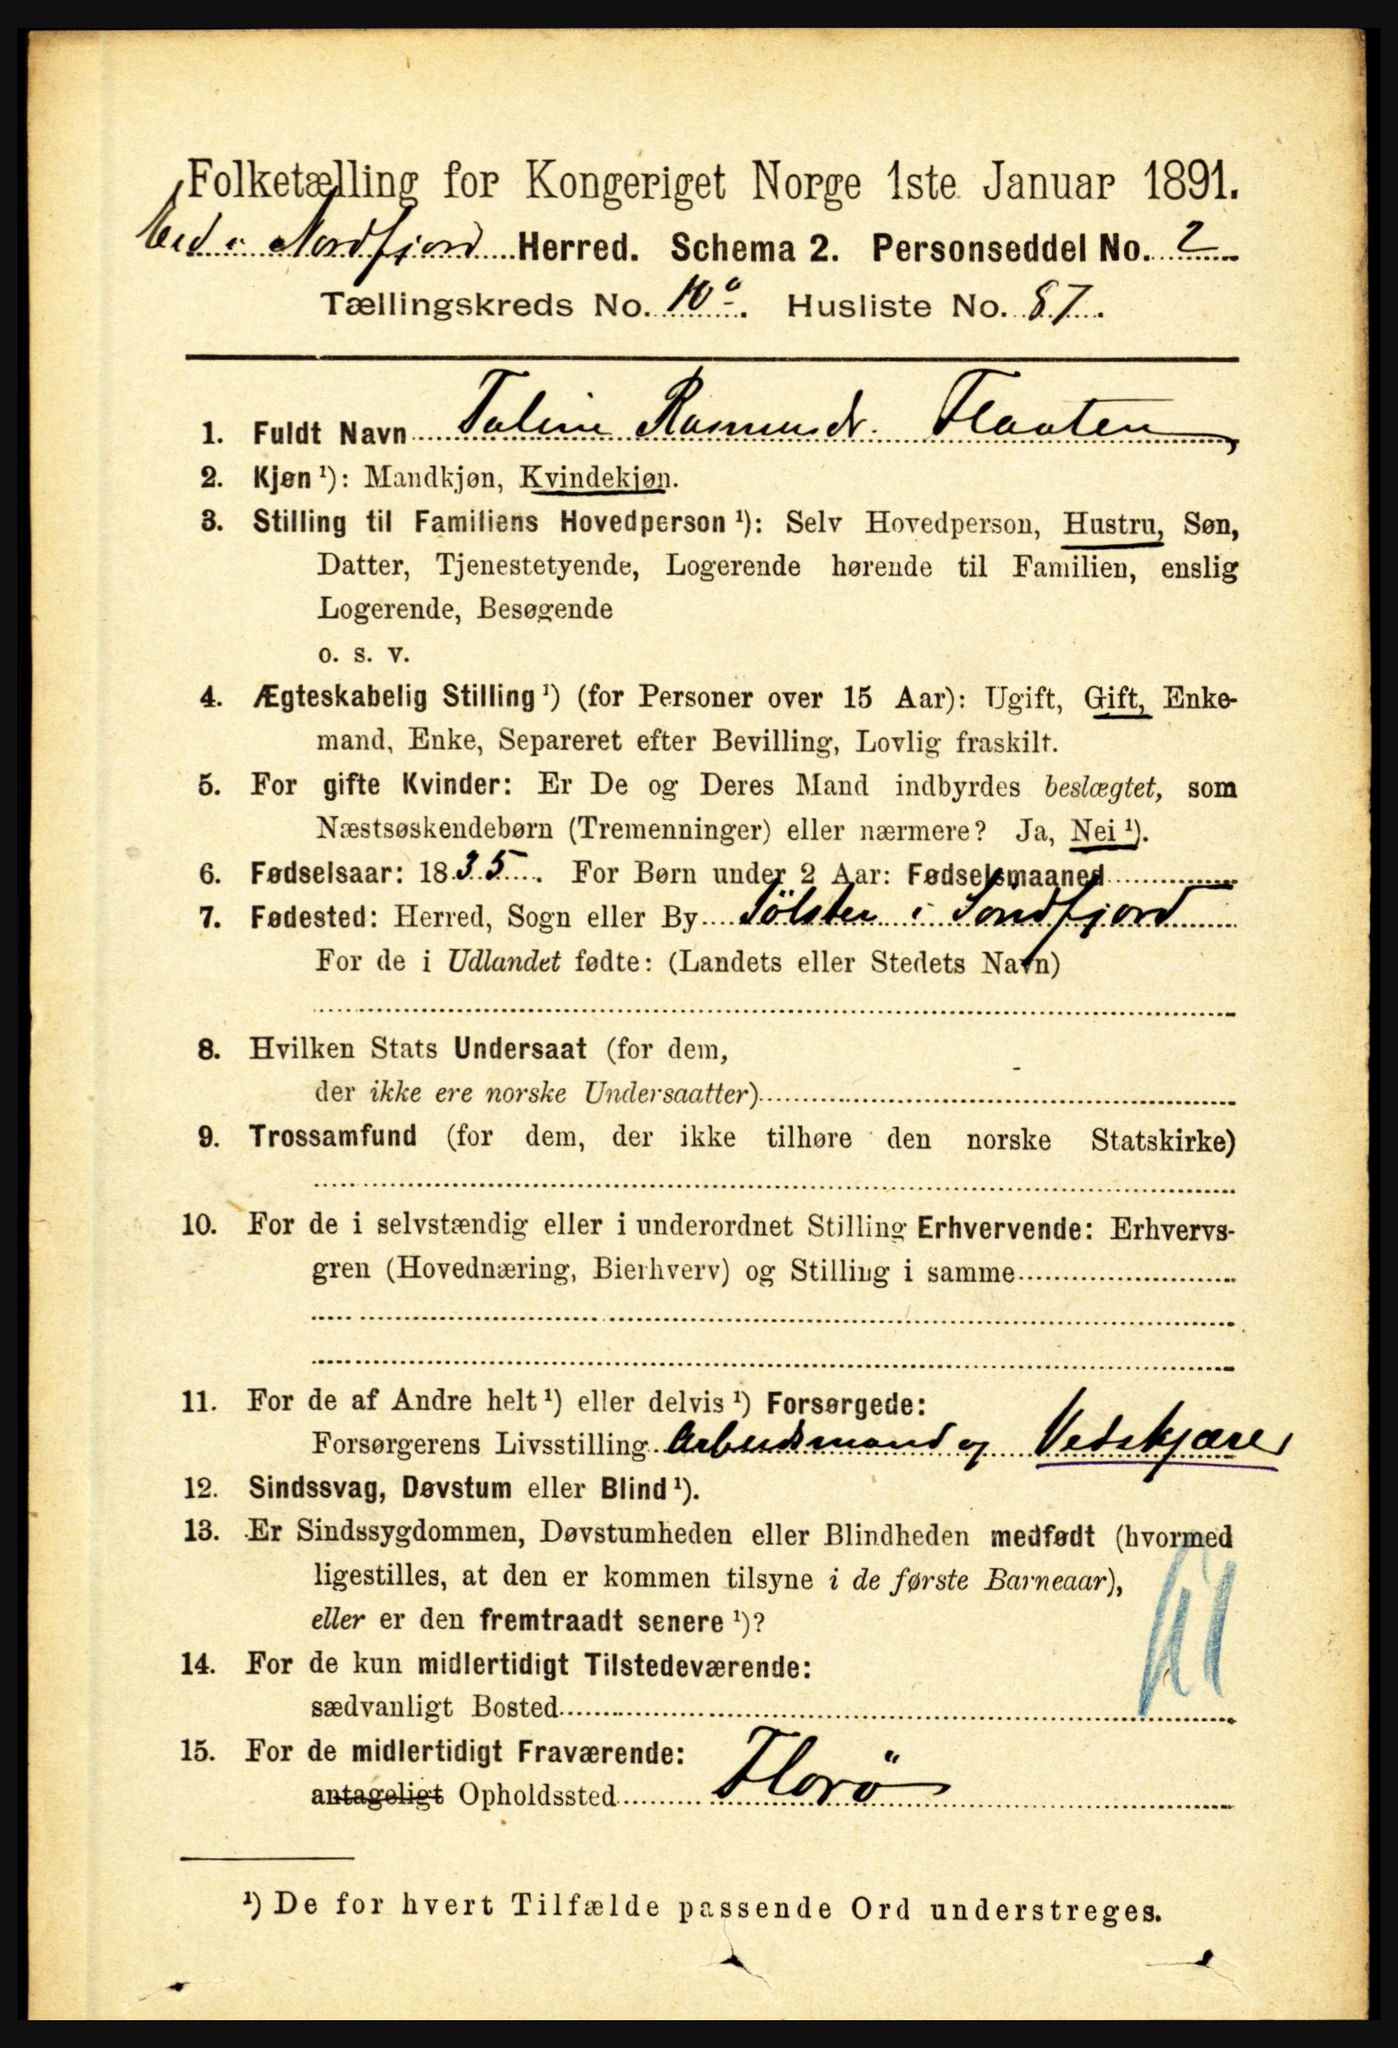 Folketælling for Kongeriget Norge 1ste Januar 1891.
Eid i Nordfjord Herred. Schema 2. Personseddel No. 2
Tællingskreds No. 10a. Husliste No. 87.
1. Fuldt Navn Taline Rasmusdr. Flaaten
2. Kjøn¹): Mandkjøn, Kvindekjøn.
3. Stilling til Familiens Hovedperson¹): Selv Hovedperson, Hustru, Søn,
Datter, Tjenestetyende, Logerende hørende til Familien, enslig
Logerende, Besøgende
o. s. v.
4. Ægteskabelig Stilling¹) (for Personer over 15 Aar): Ugift, Gift, Enke-
mand, Enke, Separeret efter Bevilling, Lovlig fraskilt.
5. For gifte Kvinder: Er De og Deres Mand indbyrdes beslægtet, som
Næstsøskendebørn (Tremenninger) eller nærmere? Ja, Nei¹).
6. Fødselsaar: 1835. For Børn under 2 Aar: Fødselsmaaned
7. Fødested: Herred, Sogn eller By i Söndfjord
For de i Udlandet fødte: (Landets eller Stedets Navn)
8. Hvilken Stats Undersaat (for dem,
der ikke ere norske Undersaatter)
9. Trossamfund (for dem, der ikke tilhøre den norske Statskirke)
10. For de i selvstændig eller i underordnet Stilling Erhvervende: Erhvervs-
gren (Hovednæring, Bierhverv) og Stilling i samme
11. For de af Andre helt¹) eller delvis¹) Forsørgede:
Forsørgerens Livsstilling Arbeidsmand og Vedskjærer
12. Sindssvag, Døvstum eller Blind¹).
13. Er Sindssygdommen, Døvstumheden eller Blindheden medfødt (hvormed
ligestilles, at den er kommen tilsyne i de første Barneaar),
eller er den fremtraadt senere¹)?
14. For de kun midlertidigt Tilstedeværende:
sædvanligt Bosted
15. For de midlertidigt Fraværende:
antageligt Opholdssted Florö
¹) De for hvert Tilfælde passende Ord understreges.